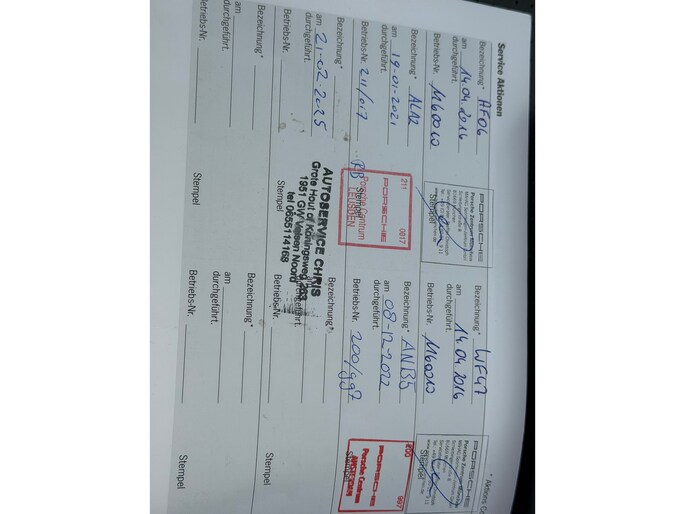 Service Aktionen
Bezeichnung* AF06
am 14.04.2016
durchgeführt.
Betriebs-Nr. 1160010
PORSCHE
Porsche Zentrum
Stempel
Bezeichnung* WF47
am 14.04.2016
durchgeführt.
Betriebs-Nr. 1160010
PORSCHE
Porsche Zentrum
Stempel
* Aktions
Bezeichnung* ALA2
am 19-01-2021
durchgeführt.
Betriebs-Nr. 211/017
211 0017
PORSCHE
Porsche Centrum
LEUSDEN
Stempel
Bezeichnung* ANB5
am 08-12-2022
durchgeführt.
Betriebs-Nr. 200/997
200 997
PORSCHE
Porsche Centrum
AMSTERDAM
Stempel
Bezeichnung*
am 21-02-2025
durchgeführt.
Betriebs-Nr.
AUTOSERVICE CHRIS
Grote Hout of Koningsweg 263
1951 GW Velsen Noord
tel 0655114168
Stempel
Bezeichnung*
am
durchgeführt.
Betriebs-Nr.
Stempel
Bezeichnung*
am
durchgeführt.
Betriebs-Nr.
Stempel
Bezeichnung*
am
durchgeführt.
Betriebs-Nr.
Stempel